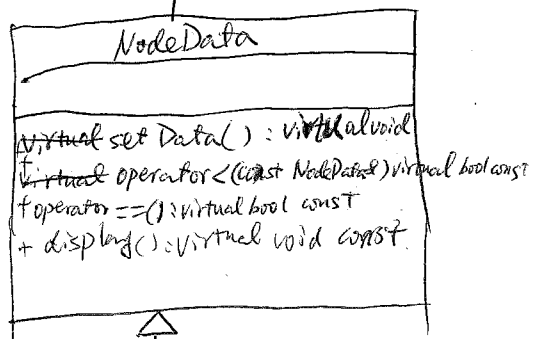 NodeData
virtual setData() : virtual void
+ virtual operator<(const NodeData&) virtual bool const
+ operator==() : virtual bool const
+ display() : virtual void const